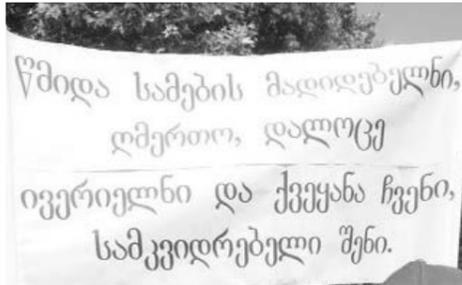 წმიდა სამების მადიდებელნი,
ღმერთო, დალოცე
ივერიელნი და ქვეყანა ჩვენი,
სამკვიდრებელი შენი.